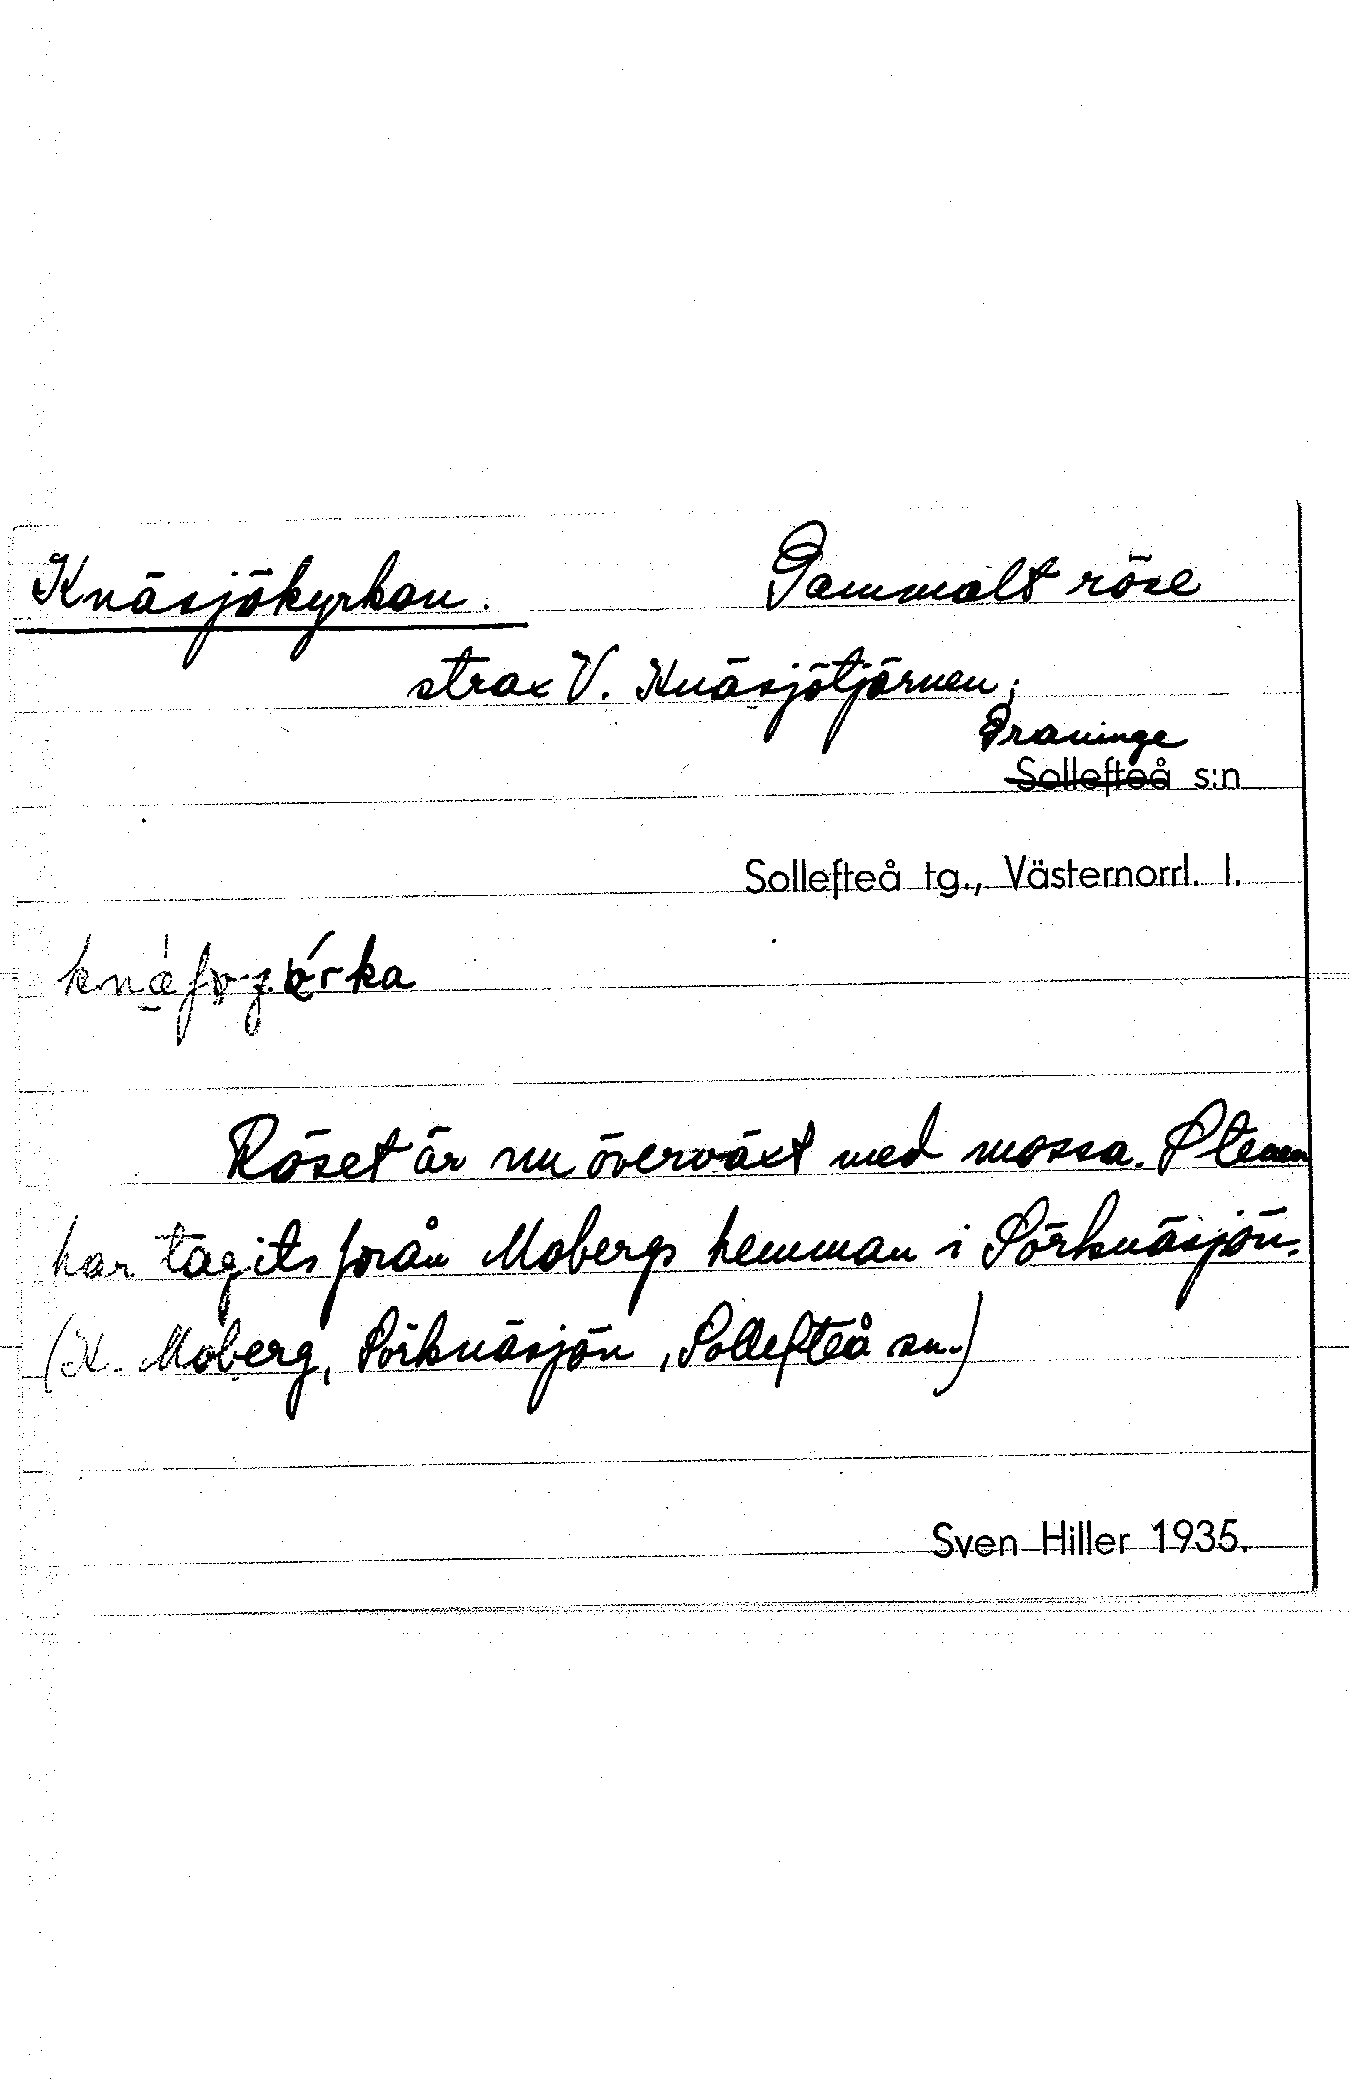 Knäsjökyrkan. Gammalt röse
strax V. Knäsjötjärnen;
Graninge
Sollefteå s:n
Sollefteå tg., Västernorrl. l.
Röset är nu överväxt med mossa. Stenen
har tagits från Mobergs hemman i Sörknäsjön.
(K. Moberg, Sörknäsjön, Sollefteå sn.)
Sven Hiller 1935.